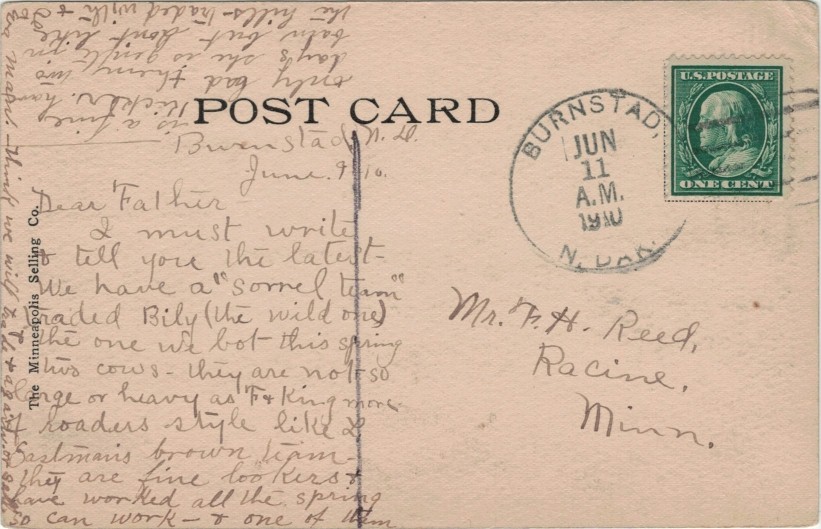 POST CARD
U.S. POSTAGE
ONE CENT
BURNSTAD,
JUN
11
A.M.
1910
N. DAK.
The Minneapolis Selling Co.
Mr. F. H. Reed,
Racine,
Minn.
Burnstad, N. D.
June. 9 10.
Dear Father
I must write
to tell you the latest-
We have a "Sorrel team"
traded Bily (the wild one)
& the one we bot this spring
& two cows - they are not so
large or heavy as F & King more
of roaders style like
Eastmans brown team -
they are fine lookers &
have worked all the spring
so can work - & one of them
is a fine
Kicker. have
only had them two
days she is gentle in
barn but dont like
the hills - traded with
mare - think we will trade again or sell